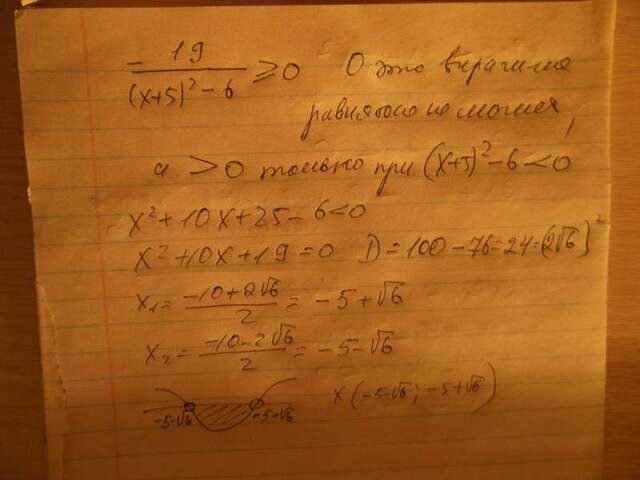 - 19/((x+5)² - 6) ⩾ 0 0 это
равнятося не может,
а > 0 только при (x+5)² - 6 < 0
x² + 10x + 25 - 6 < 0
x² + 10x + 19 = 0 D = 100 - 76 = 24 = (2√6)²
x₁ = (-10 + 2√6)/2 = -5 + √6
x₂ = (-10 - 2√6)/2 = -5 - √6
-5-√6 -5+√6 x (-5-√6; -5+√6)